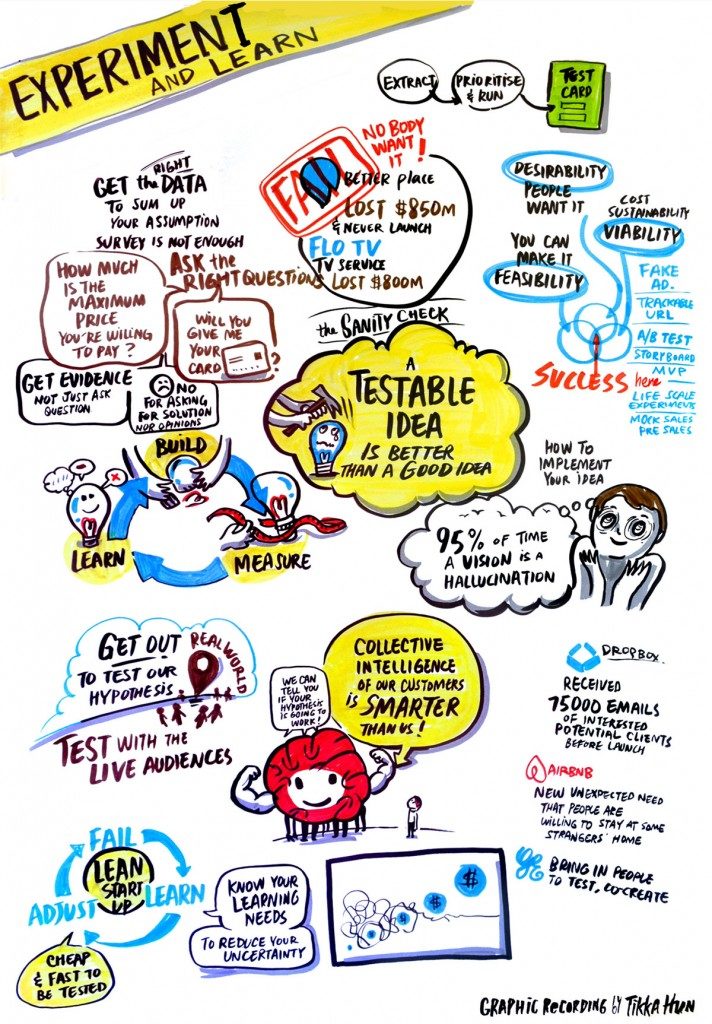 EXPERIMENT
AND LEARN
EXTRACT
PRIORITISE
& RUN
TEST
CARD
GET the RIGHT DATA
TO SUM UP
YOUR ASSUMPTION
SURVEY IS NOT ENOUGH
ASK the
RIGHT QUESTIONS
HOW MUCH
IS THE
MAXIMUM
PRICE
YOU'RE WILLING
TO PAY?
WILL YOU
GIVE ME
YOUR
CARD
?
GET EVIDENCE
NOT JUST ASK
QUESTION
NO
FOR ASKING
FOR SOLUTION
NOR OPINIONS
FAIL
NO BODY
WANT
IT!
BETTER PLACE
LOST $850M
& NEVER LAUNCH
FLO TV
TV SERVICE
LOST $800M
the SANITY CHECK
A
TESTABLE
IDEA
IS BETTER
THAN A GOOD IDEA
DESIRABILITY
PEOPLE
WANT IT
COST
SUSTAINABILITY
VIABILITY
YOU CAN
MAKE IT
FEASIBILITY
SUCCESS here
FAKE
AD.
TRACKABLE
URL
A/B TEST
STORYBOARD
MVP
LIFE SCALE
EXPERIMENT
MOCK SALES
PRE SALES
BUILD
MEASURE
LEARN
HOW TO
IMPLEMENT
YOUR IDEA
95% OF TIME
A VISION IS A
HALLUCINATION
GET OUT
TO TEST OUR
HYPOTHESIS
REAL WORLD
TEST WITH THE
LIVE AUDIENCES
WE CAN
TELL YOU
IF YOUR
HYPOTHESIS
IS GOING TO
WORK!
COLLECTIVE
INTELLIGENCE
OF OUR CUSTOMERS
IS SMARTER
THAN US!
DROPBOX
RECEIVED
75000 EMAILS
OF INTERESTED
POTENTIAL CLIENTS
BEFORE LAUNCH
AIRBNB
NEW UNEXPECTED NEED
THAT PEOPLE ARE
WILLING TO STAY AT SOME
STRANGERS' HOME
GE BRING IN PEOPLE
TO TEST, CO-CREATE
FAIL
LEARN
ADJUST
LEAN
START
UP
CHEAP
& FAST TO
BE TESTED
KNOW YOUR
LEARNING
NEEDS
TO REDUCE YOUR
UNCERTAINTY
$
$
$
GRAPHIC RECORDING BY TIKKA HUN